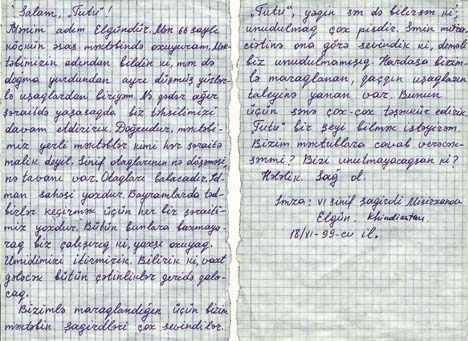 Salam, „Tutu"!
Mənim adım Elgündür. Mən 66 saylı
köçkün əsas məktəbində oxuyuram. Mək-
təbimizin adından bildin ki, mən də
doğma yurdundan ayrı düşmüş yüzlər-
lə uşaqlardan biriyəm. Nə qədər ağır
şəraitdə yaşasaqda biz təhsilimizi
davam etdiririk. Doğrudur, məktəbi-
miz yerli məktəblər kimi hər şəraitə
malik deyil. Sinif otaqlarının nə döşəməsi,
nə tavanı var. Otaqları balacadır. İd-
man sahəsi yoxdur. Bayramlarda təd-
birlər keçirmək üçün heç bir şəraiti-
miz yoxdur. Bütün bunlara baxmaya-
raq biz çalışırıq ki, yaxşı oxuyaq.
Ümidimizi itirmirik. Bilirik ki, vaxt
gələcək bütün çətinliklər geridə qala-
caq.
Bizimlə maraqlandığın üçün bizim
məktəbin şagirdləri çox sevindilər.
„Tutu", yəqin sən də bilirsən ki,
unudulmaq çox pisdir. Sənin müra-
ciətinə ona görə sevindik ki, deməli
biz unudulmamışıq. Hardasa bizim-
lə maraqlanan, qaçqın uşaqların
taleyinə yanan var. Bunun
üçün sənə çox-çox təşəkkür edirik.
„Tutu" bir şeyi bilmək istəyirəm.
Bizim məktublara cavab verəcək-
sənmi? Bizi unutmayacaqsan ki?
Hələlik. Sağ ol.
İmza: VI sinif şagirdi
Elgün.
18/VI-99-cu il.